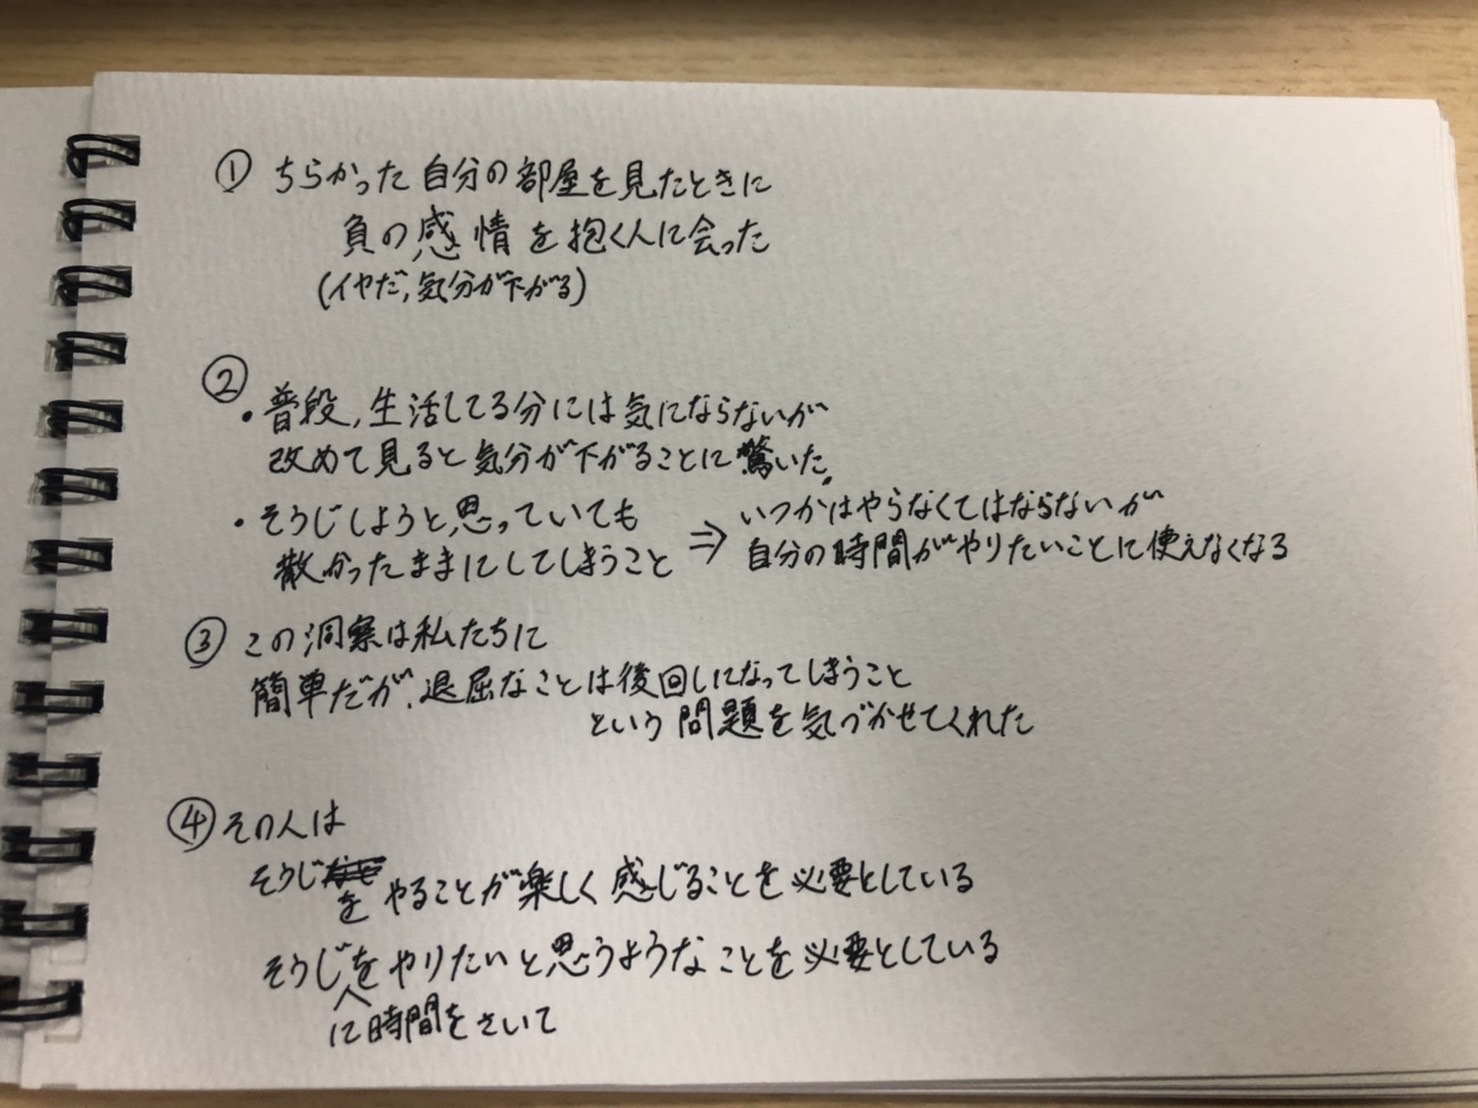 ① ちらかった自分の部屋を見たときに
負の感情を抱く人に会った
(イヤだ,気分が下がる)
②
・普段,生活してる分には気にならないが
改めて見ると気分が下がることに驚いた。
・そうじしようと思っていても
散かったままにしてしまうこと
⇒ いつかはやらなくてはならないが
自分の時間がやりたいことに使えなくなる
③ この洞察は私たちに
簡単だが、退屈なことは後回しになってしまうこと
という問題を気づかせてくれた
④ その人は
そうじをやることが楽しく感じることを必要としている
そうじをやりたいと思うようなことを必要としている
に時間をさいて